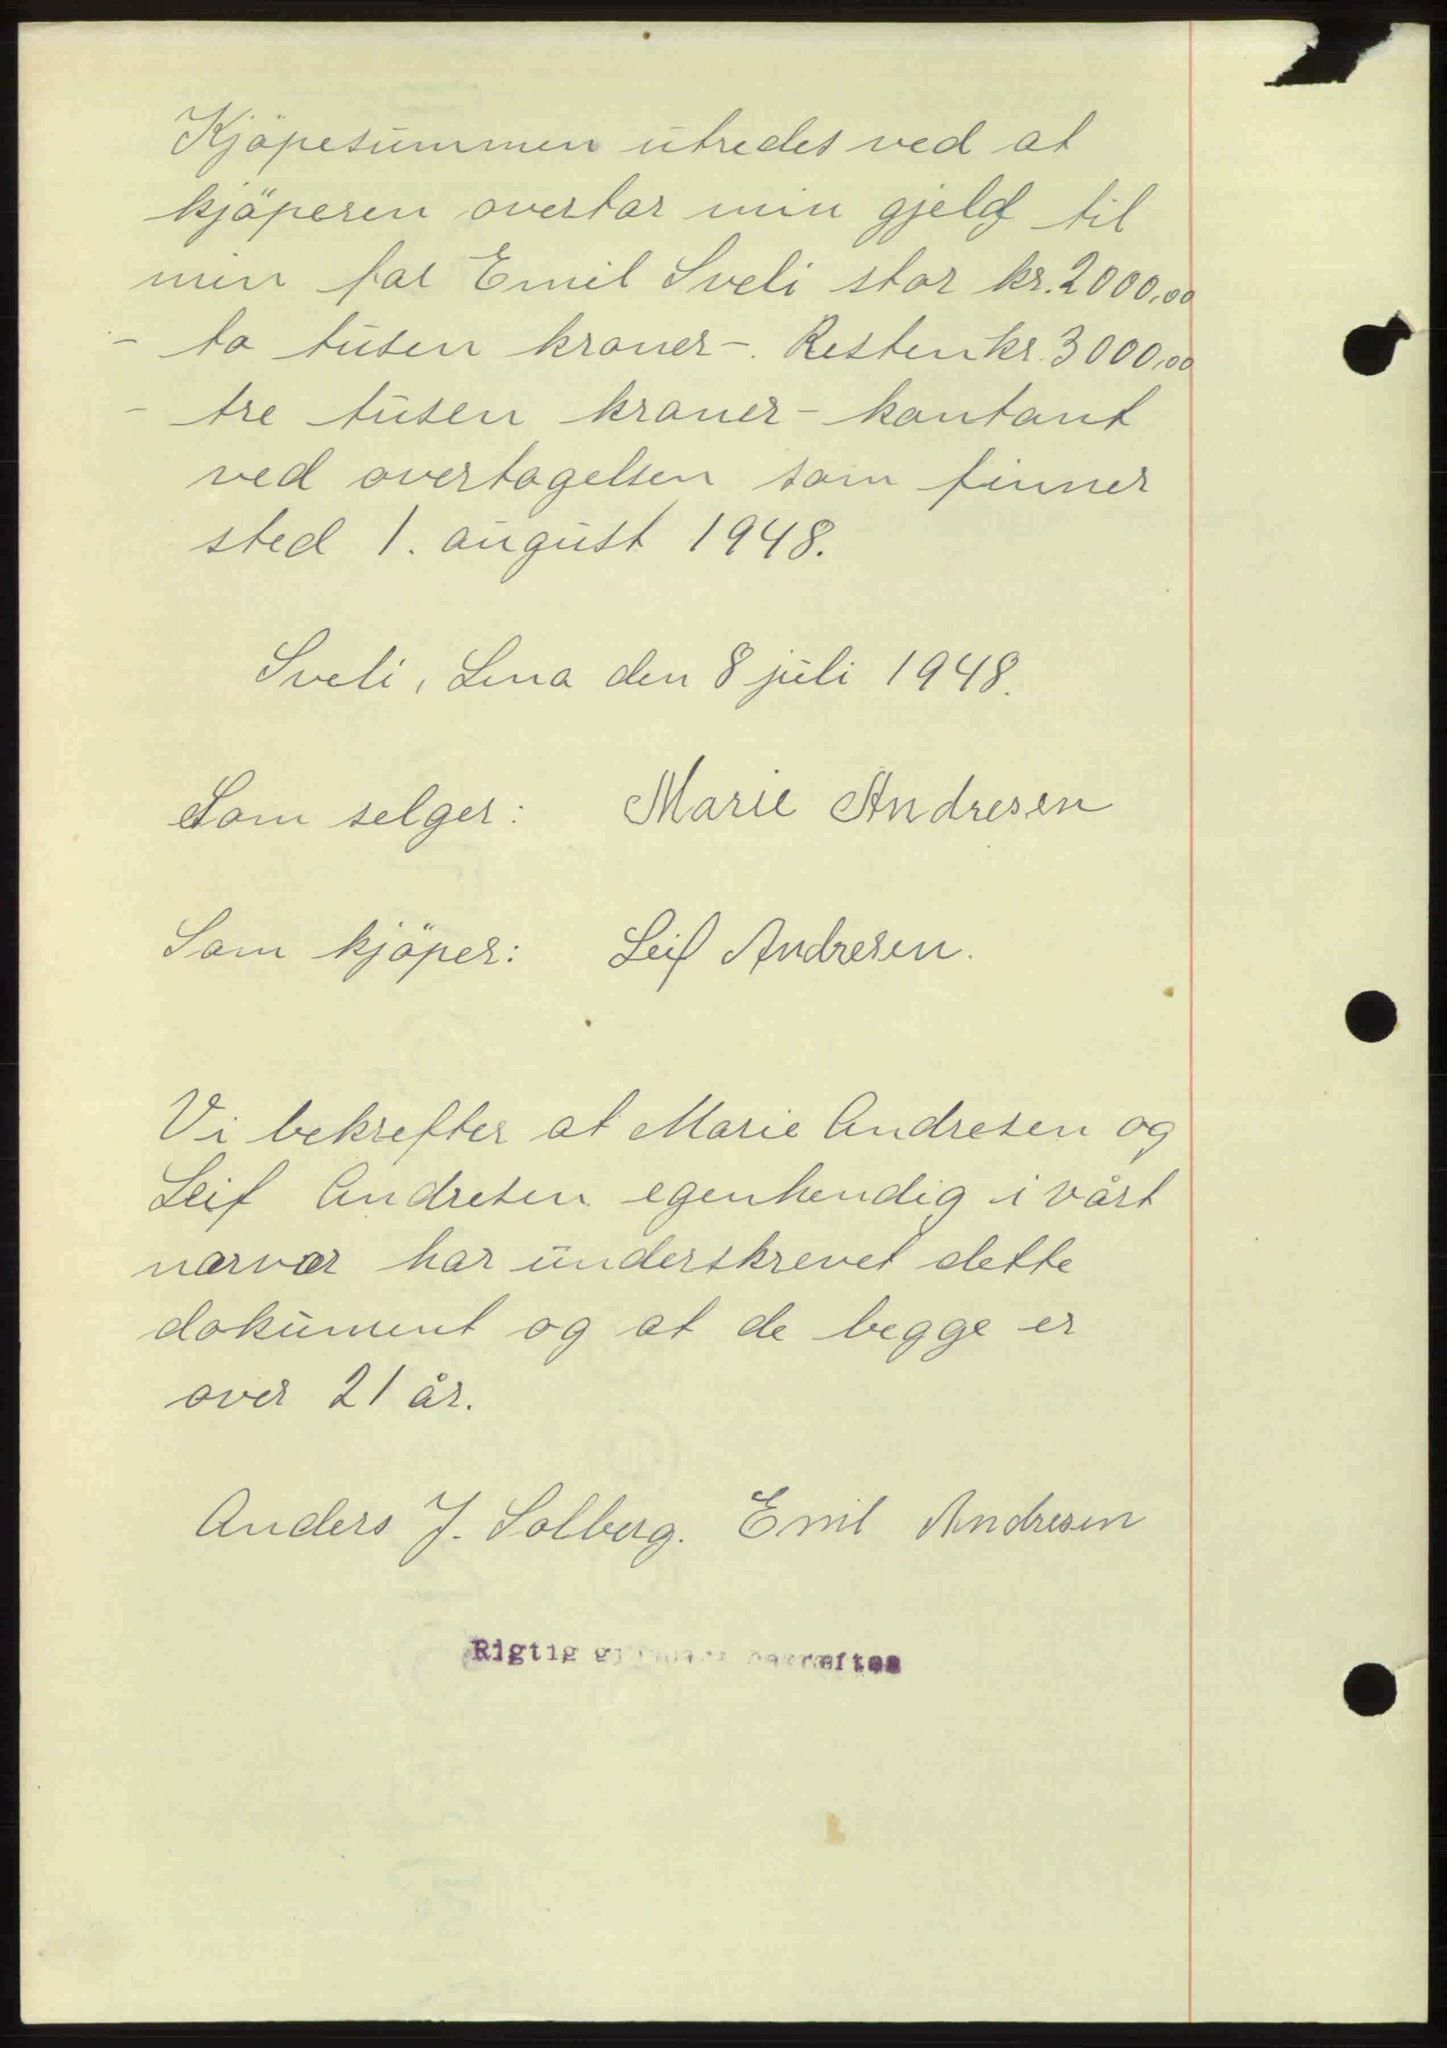 Kjöpesummen utredes ved at
kjöperen overtar min gjeld til
min far Emil Sveli stor kr. 2000,00
- to tusen kroner -. Resten kr. 3000,00
- tre tusen kroner - kontant
ved overtagelsen som finner
sted 1. august 1948.
Sveli, Lena den 8 juli 1948.
Som selger: Marie Andresen
Som kjöper: Leif Andresen.
Vi bekrefter at Marie Andresen og
Leif Andresen egenhendig i vårt
nærvær har underskrevet dette
dokument og at de begge er
over 21 år.
Anders J. Solberg. Emil Andresen
Rigtig